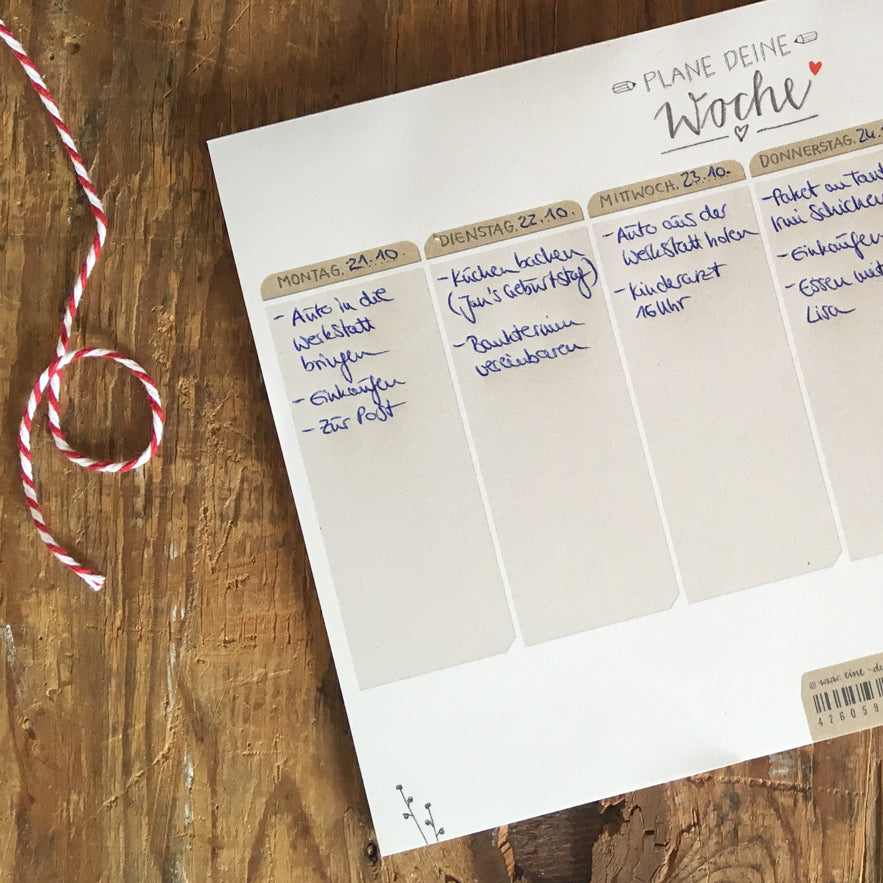 PLANE DEINE
Woche
MONTAG, 21.10.
- Auto in die
Werkstatt
bringen
- Einkaufen
- Zur Post
DIENSTAG, 22.10.
- Kuchen backen
(Jan's Geburtstag)
- Banktermin
vereinbaren
MITTWOCH, 23.10.
- Auto aus der
Werkstatt holen
- Kinderarzt
16 Uhr
DONNERSTAG, 24.
- Paket an
Irmi schicken
- Einkaufen
- Essen mit
Lisa
© www.eine-
426059